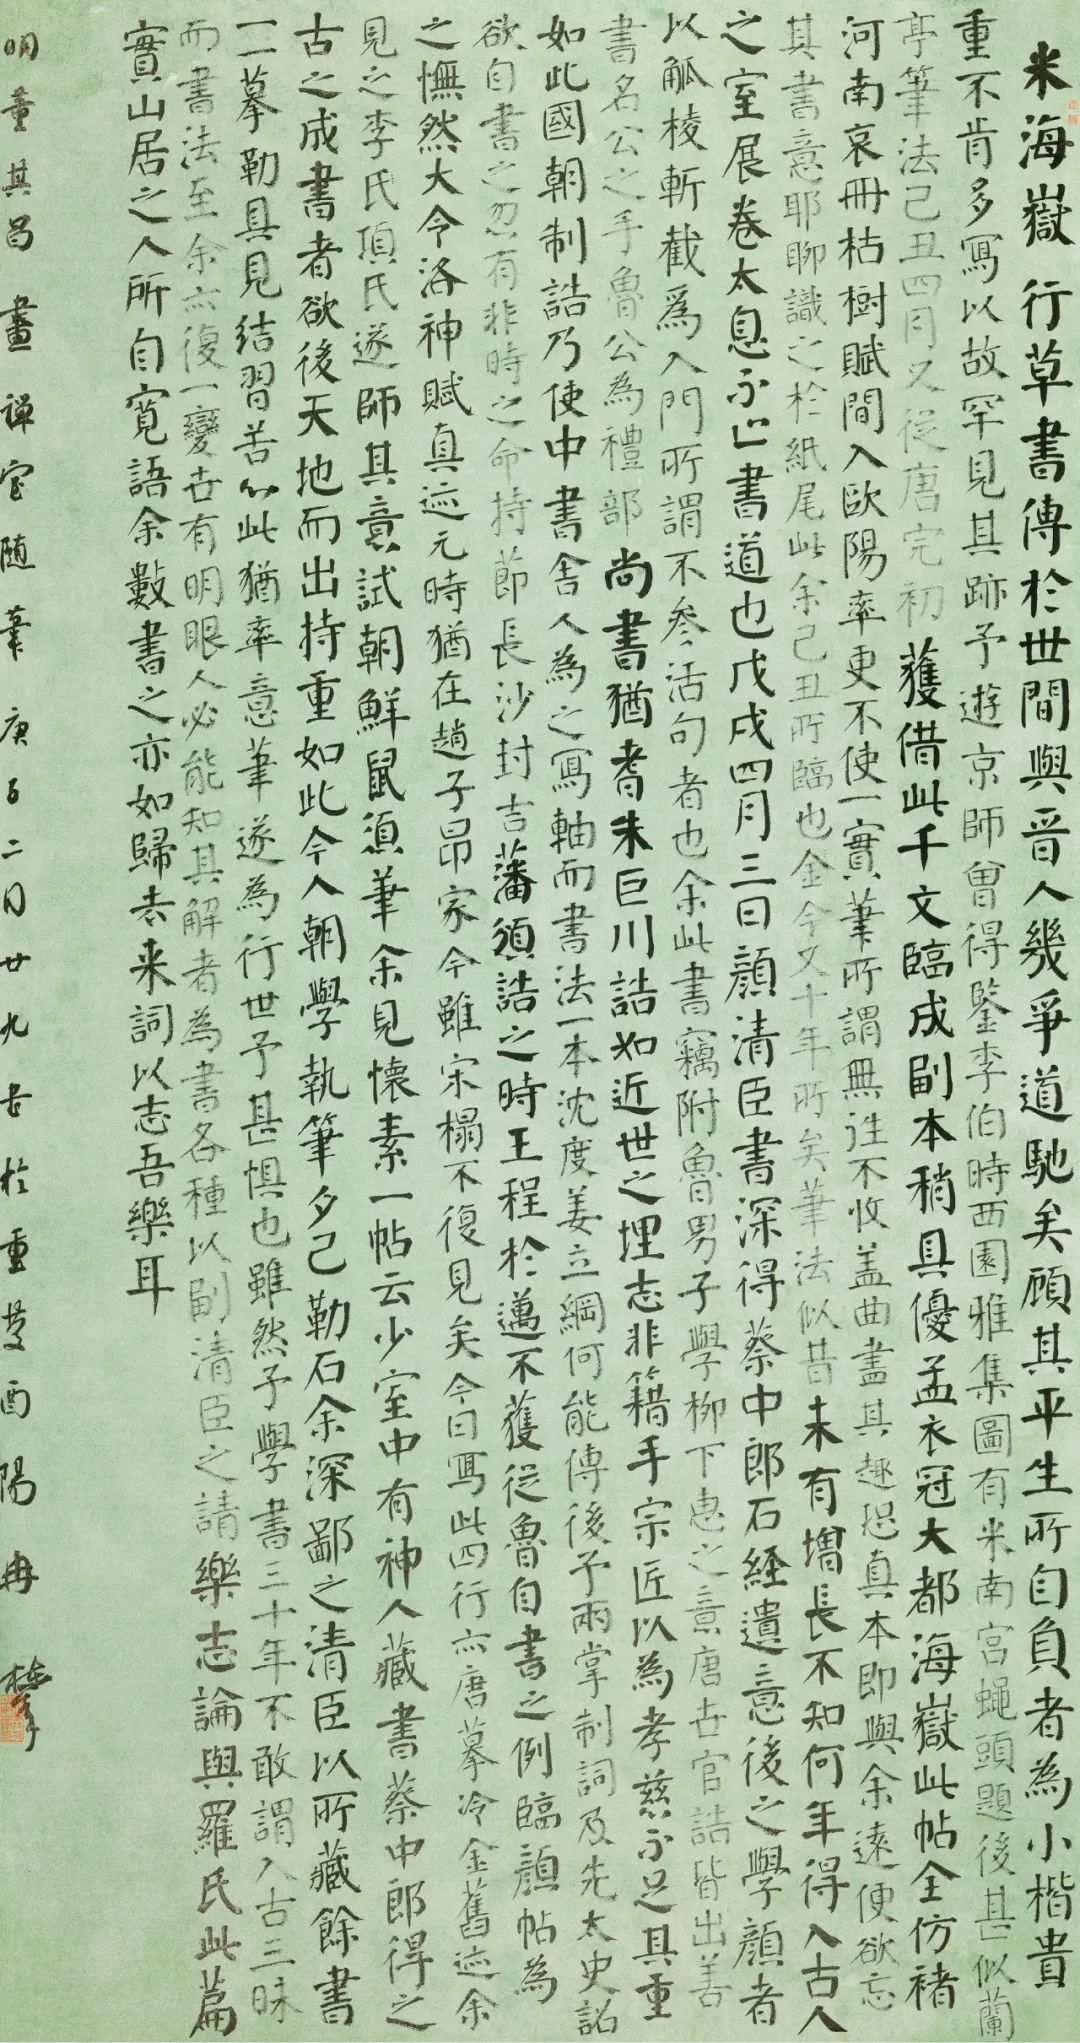 米海嶽行草書傳於世間與晉人幾爭道馳矣顧其平生所自負者為小楷貴
重不肯多寫以故罕見其跡予遊京師曾得鑒李伯時西園雅集圖有米南宮蠅頭題後甚似蘭
亭筆法己丑四月又從唐完初獲借此千文臨成副本稍具優孟衣冠大都海嶽此帖全仿褚
河南哀冊枯樹賦間入歐陽率更不使一實筆所謂無往不收蓋曲盡其趣恐真本即與余遠便欲忘
其書意耶聊識之於紙尾此余己丑所臨也金今又十年所矣筆法似昔未有增長不知何年得入古人
之室展卷太息不止書道也戊戌四月三日顏清臣書深得蔡中郎石経遺意後之學顏者
以觚棱斬截為入門所謂不參活句者也余此書竊附魯男子學柳下惠之意唐世官誥皆出善
書名公之手魯公為禮部尚書猶耆朱巨川誥如近世之埋志非籍手宗匠以為孝慈不足其重
如此國朝制誥乃使中書舍人為之寫軸而書法一本沈度姜立綱何能傳後予兩掌制詞及先太史誥
欲自書之忽有非時之命持節長沙封吉藩頒誥之時王程於邁不獲從魯自書之例臨顏帖為
之憮然大令洛神賦真迹元時猶在趙子昂家今雖宋榻不復見矣今日寫此四行亦唐摹冷金舊迹余
見之李氏項氏遂師其意試朝鮮鼠須筆余見懷素一帖云少室中有神人藏書蔡中郎得之
古之成書者欲後天地而出持重如此今人朝學執筆夕己勒石余深鄙之清臣以所藏餘書
一一摹勒具見結習苦心此猶率意筆遂為行世予甚惧也雖然予學書三十年不敢謂入古三昧
而書法至余亦復一變世有明眼人必能知其解者為書各種以副清臣之請樂志論與羅氏此篇
實山居之人所自寬語余數書之亦如歸去来詞以志吾樂耳
明董其昌畫禅室随筆庚子二月廿九古於重慶酉陽冉